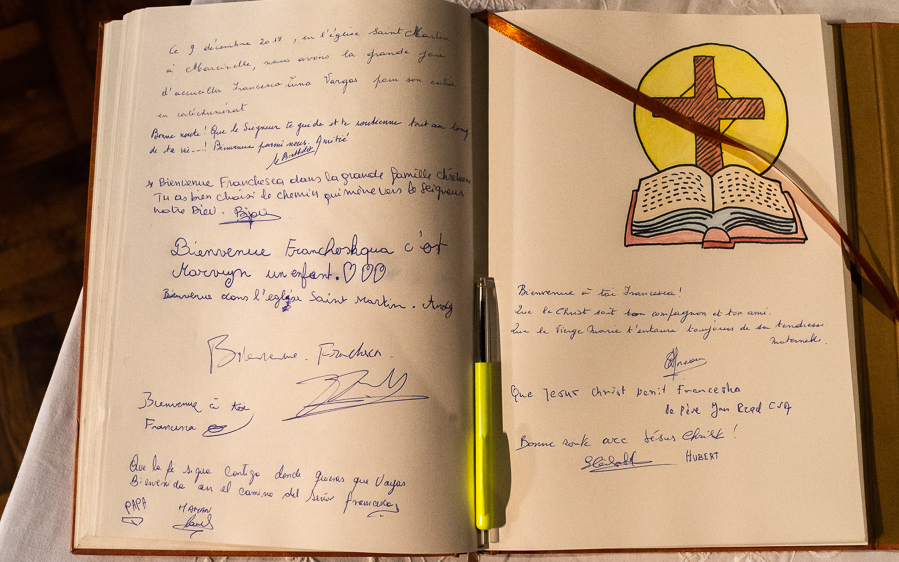 Ce 9 décembre 2018, en l'église Saint Martin
à Marcinelle, nous avons la grande joie
d'accueillir Francesca Luna Vargas pour son entrée
en catéchuménat
Bonne route! Que le Seigneur te guide et te soutienne tout au long
de ta vie...! Bienvenue parmi nous. Amitié
Bienvenue Franchesca dans la grande famille chrétienne
Tu as bien choisi le chemin qui mène vers le Seigneur
notre Dieu. Bijou
Bienvenue Francheskqua c'est
Marvyn un enfant.
Bienvenue dans l'eglise Saint Martin. Andy
Bienvenue. Franchesca.
Bienvenue à toi
Francisca
Que la fe sigua contigo donde quieras que vayas
Bienvenida en el camino del Señor Franceskas
PAPA MAMAN
Bienvenue à toi Francesca!
Que le Christ soit ton compagnon et ton ami.
Que la Vierge Marie t'entoure toujours de sa tendresse
maternelle.
Que Jesus Christ benit Franceska
le Père Jan
Bonne route avec Jésus Christ!
HUBERT